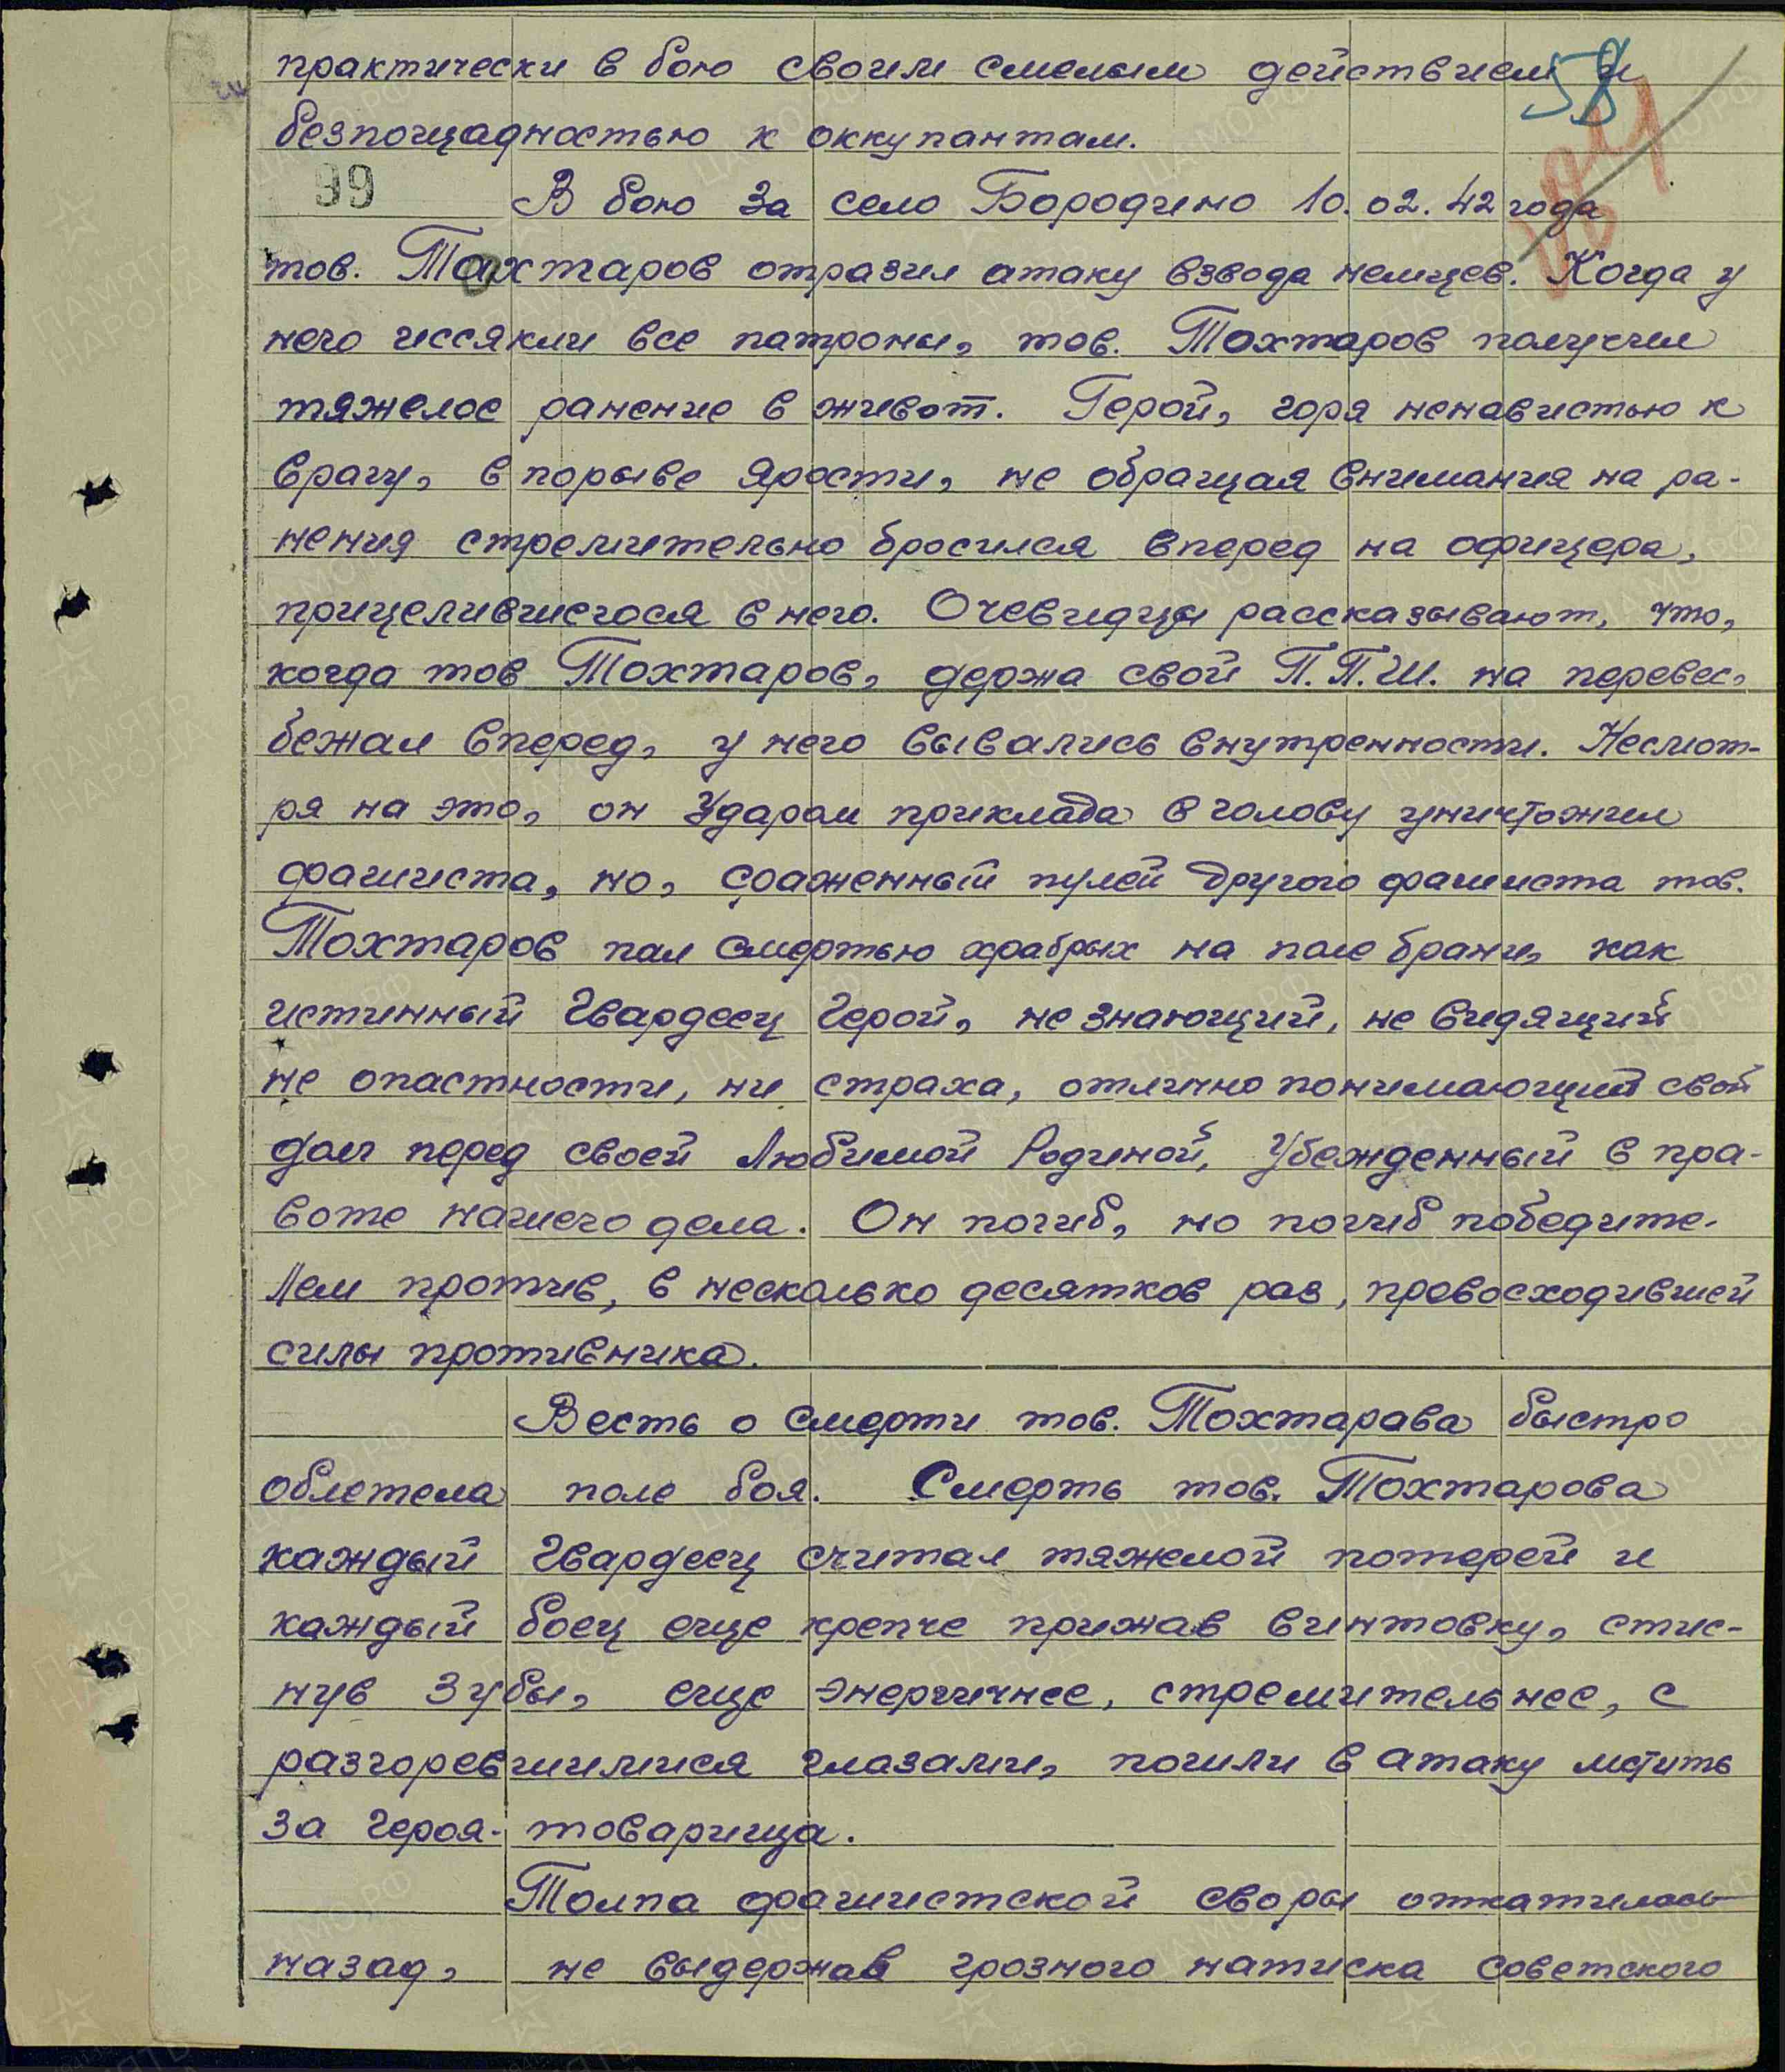 58
практически в бою своим смелым действием и
безпощадностью к оккупантам.
99
В бою за село Бородино 10.02.42 года
тов. Тохтаров отразил атаку взвода немцев. Когда у
него иссякли все патроны, тов. Тохтаров получил
тяжелое ранение в живот. Герой, горя ненавистью к
врагу, в порыве ярости, не обращая внимания на ра-
нения стремительно бросился вперед на офицера,
прицелившегося в него. Очевидцы рассказывают, что,
когда тов Тохтаров, держа свой П.П.Ш. на перевес,
бежал вперед, у него вывались внутренности. Несмот-
ря на это, он ударом приклада в голову уничтожил
фашиста, но, сраженный пулей другого фашиста тов.
Тохтаров пал смертью храбрых на поле брани, как
истинный Гвардеец Герой, не знающий, не видящий
не опастности, ни страха, отлично понимающий свой
долг перед своей Любимой Родиной, Убежденный в пра-
воте нашего дела. Он погиб, но погиб победите-
лем против, в несколько десятков раз, превосходившей
силы противника.
Весть о смерти тов. Тохтарава быстро
облетела поле боя. Смерть тов. Тохтарова
каждый Гвардеец считал тяжелой потерей и
каждый боец еще крепче прижав винтовку, стис-
нув зубы, еще энергичнее, стремительнее, с
разгоревшимися глазами, пошли в атаку мстить
за героя-товарища.
Толпа фашистской своры откатилась
назад, не выдержав грозного натиска советского